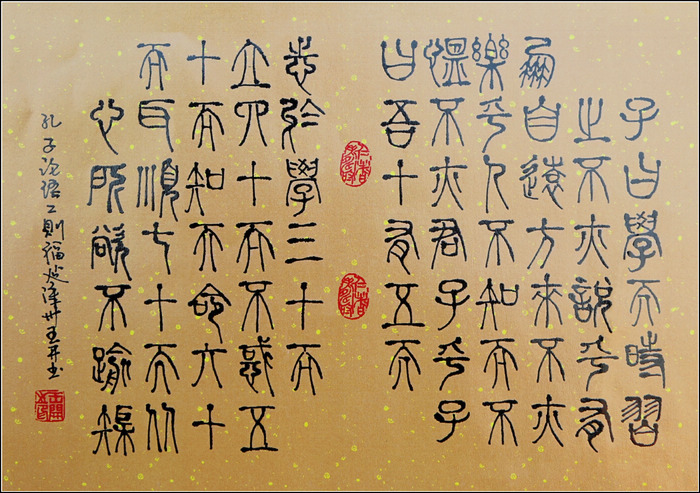 子曰學而時習
之不亦說乎有
朋自遠方來不亦
樂乎人不知而不
慍不亦君子乎子
曰吾十有五而
志於學三十而
立四十而不惑五
十而知天命六十
而耳順七十而從
心所欲不踰矩
孔子论语二則福建漳州王开玉